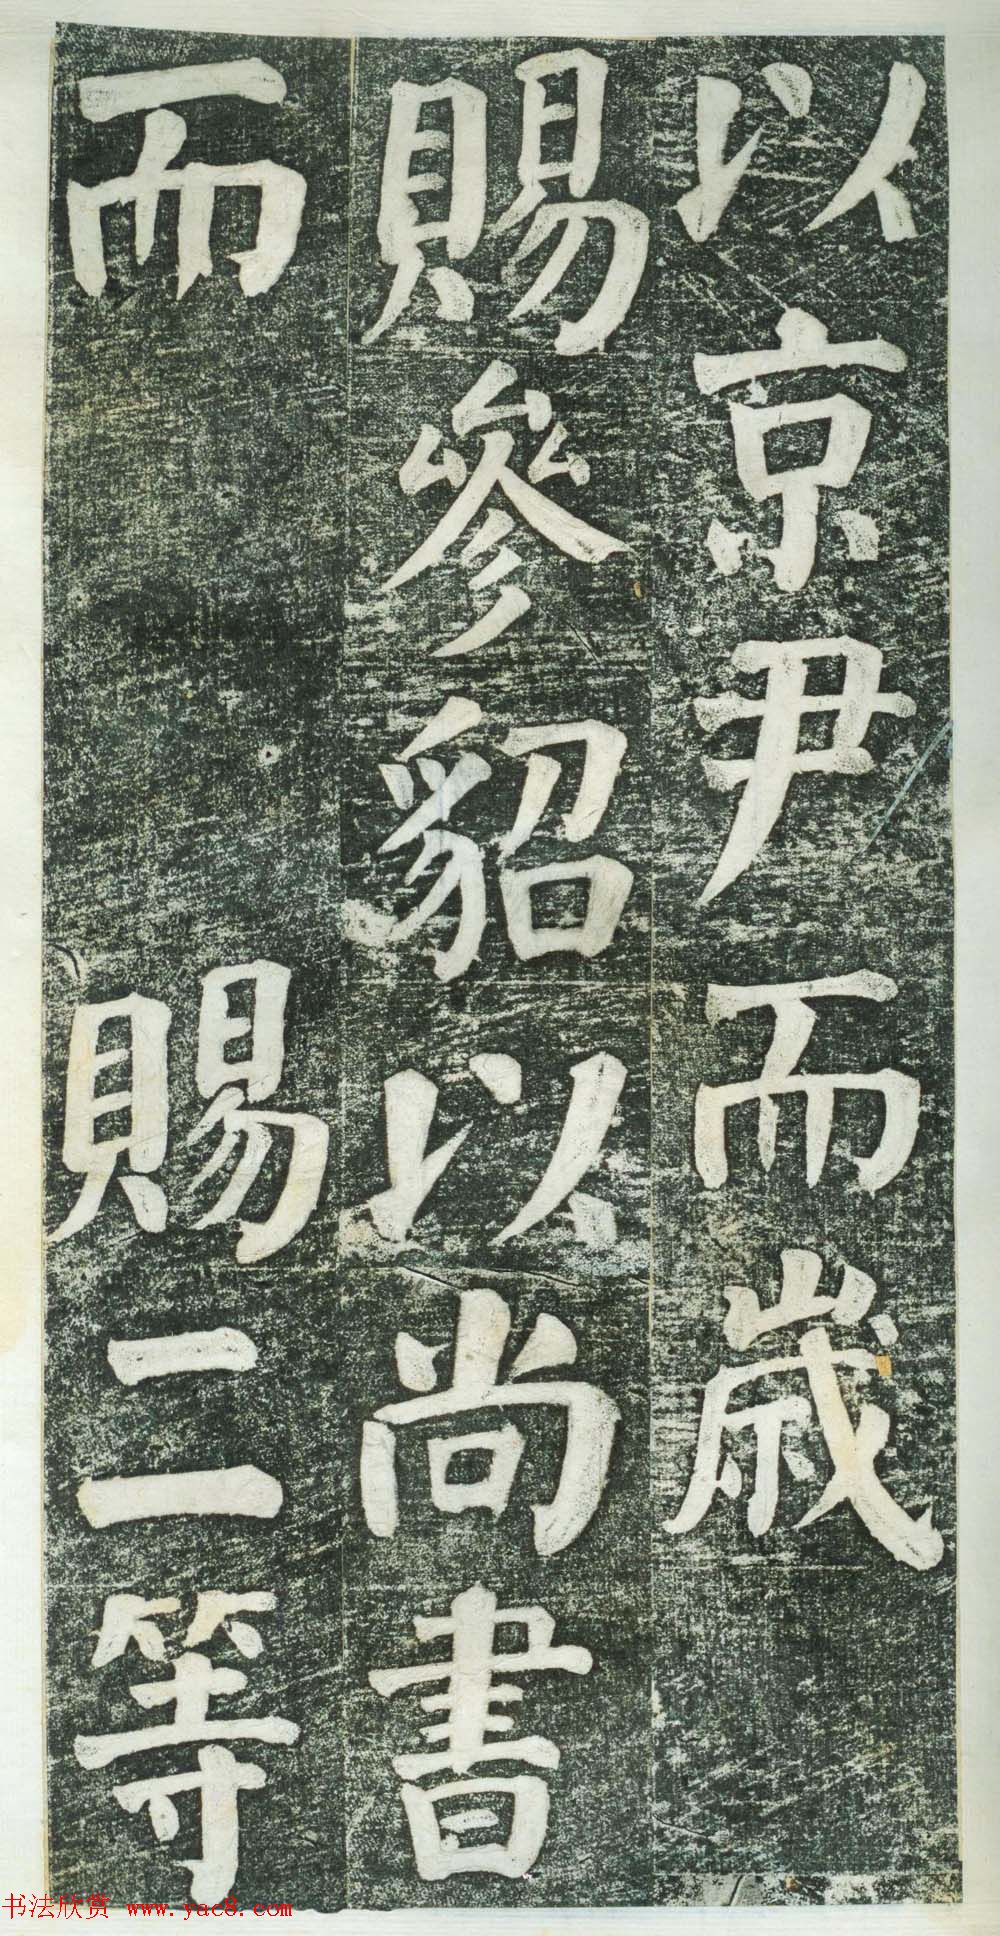 以京尹而歲
賜參貂以尚書
而賜二等
书法欣赏 www.yac8.com